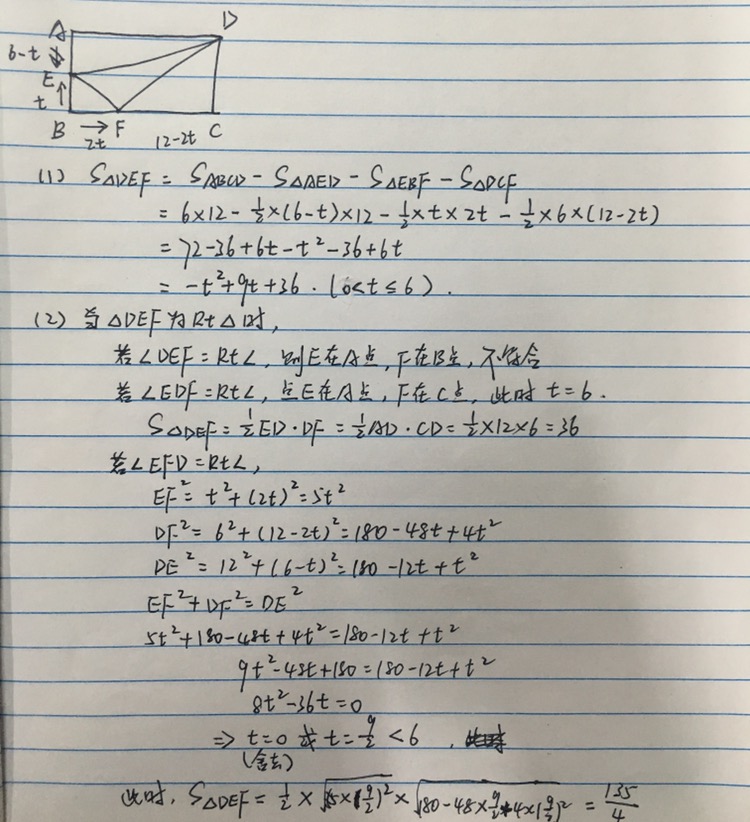 A D
6-t
E
t
B → F C
2t 12-2t
(1) S△DEF = SABCD - S△AED - S△EBF - S△DCF
= 6×12 - 1/2×(6-t)×12 - 1/2×t×2t - 1/2×6×(12-2t)
= 72-36+6t-t²-36+6t
= -t²+9t+36. (0<t≤6).
(2) 当△DEF为Rt△时,
若∠DEF=Rt∠, 则E在A点, F在B点, 不符合
若∠EDF=Rt∠, 点E在A点, F在C点, 此时 t=6.
S△DEF = 1/2 ED·DF = 1/2 AD·CD = 1/2×12×6=36
若∠EFD=Rt∠,
EF² = t²+(2t)²=5t²
DF² = 6²+(12-2t)²=180-48t+4t²
DE² = 12²+(6-t)²=180-12t+t²
EF²+DF²=DE²
5t²+180-48t+4t²=180-12t+t²
9t²-48t+180=180-12t+t²
8t²-36t=0
⇒ t=0 或 t=9/2 <6 .
(舍去)
此时, S△DEF = 1/2 × √(5×(9/2)²) × √(180-48×9/2+4×(9/2)²) = 135/4